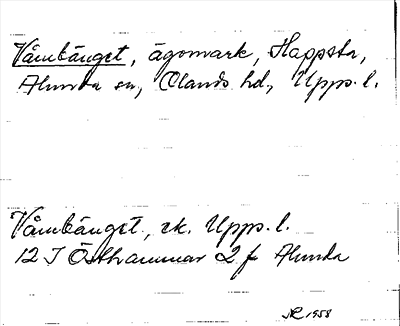 Våmbänget, ägomark, Happsta,
Alunda sn, Olands hd., Upps. l.
Våmbänget, ek. Upps. l.
12 I Östhammar 2 f Alunda
1958